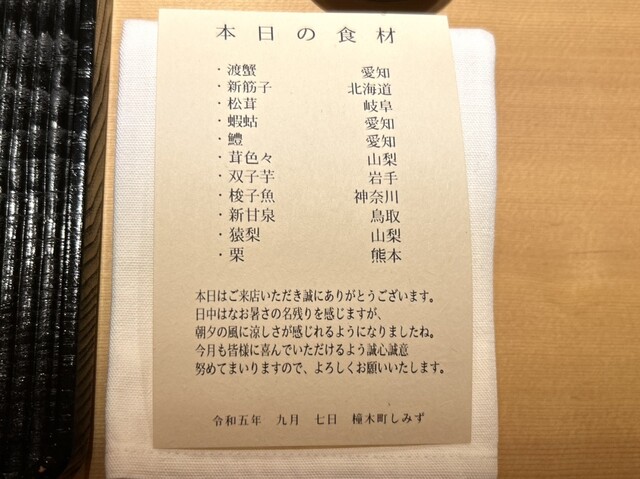 本日の食材
・渡蟹 愛知
・新筋子 北海道
・松茸 岐阜
・蝦蛄 愛知
・鱧 愛知
・茸色々 山梨
・双子芋 岩手
・梭子魚 神奈川
・新甘泉 鳥取
・猿梨 山梨
・栗 熊本
本日はご来店いただき誠にありがとうございます。
日中はなお暑さの名残りを感じますが、
朝夕の風に涼しさが感じれるようになりましたね。
今月も皆様に喜んでいただけるよう誠心誠意
努めてまいりますので、よろしくお願いいたします。
令和五年 九月 七日 橦木町しみず